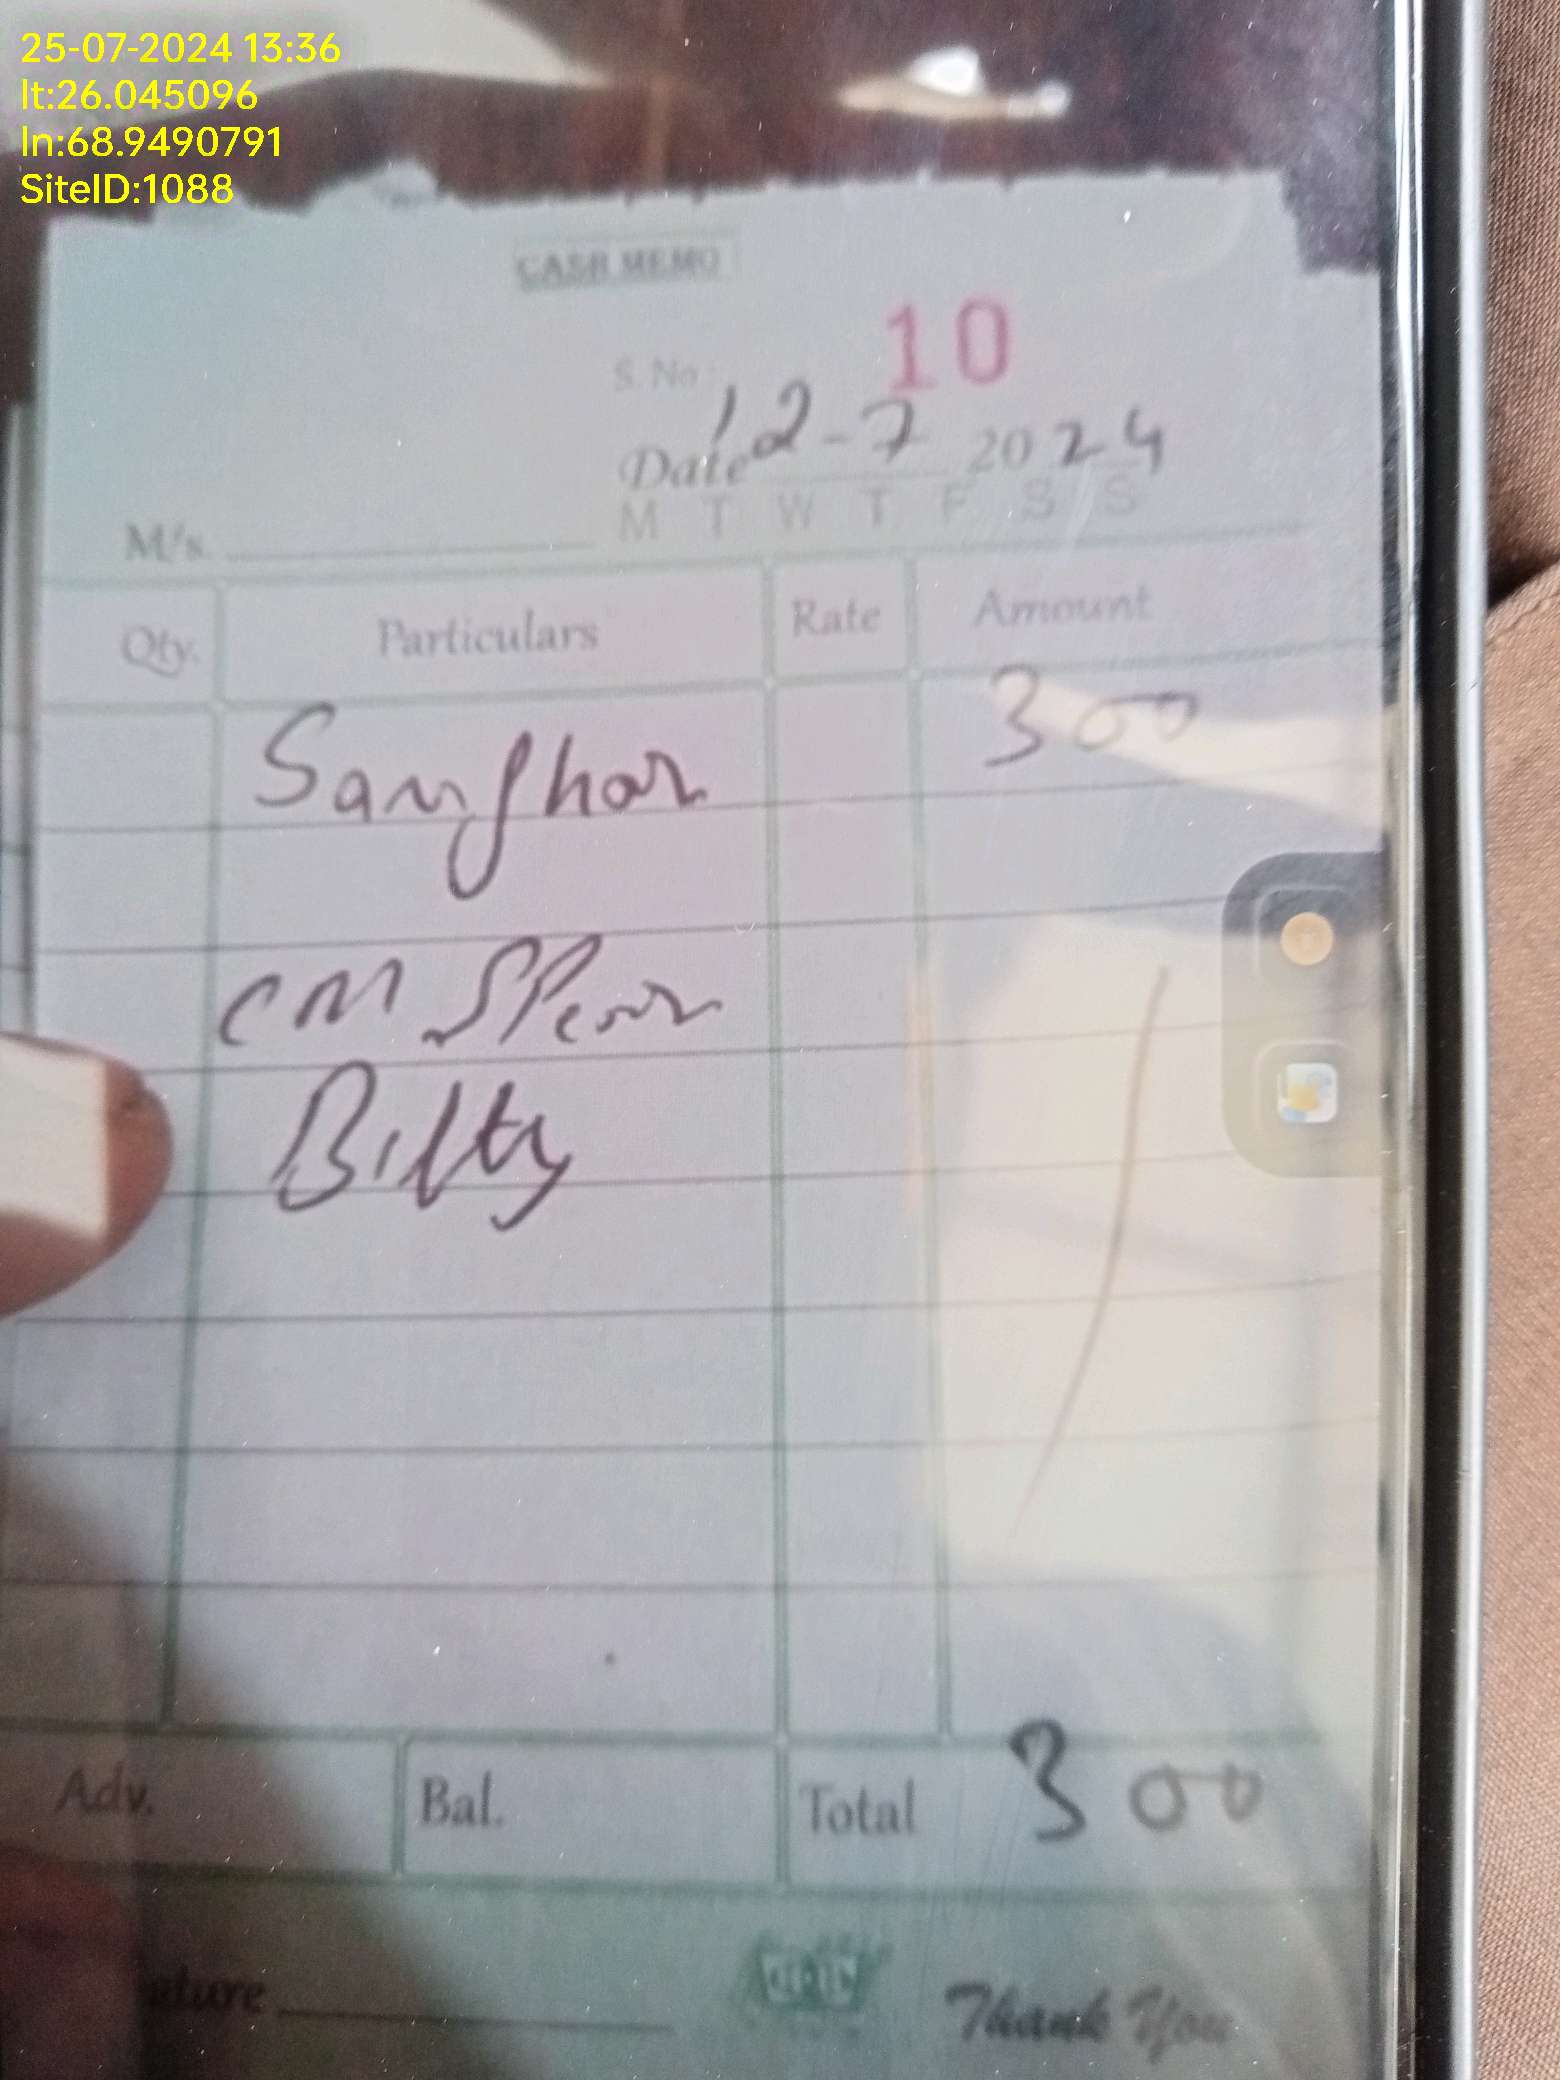 25-07-2024 13:36
lt:26.045096
ln:68.9490791
SiteID:1088
CASH MEMO
S. No 10
Date 12-7 2024
M T W T F S S
M/s.
Qty. Particulars Rate Amount
Sanghar 300
CM
Bilty
Adv. Bal. Total 300
Thank You